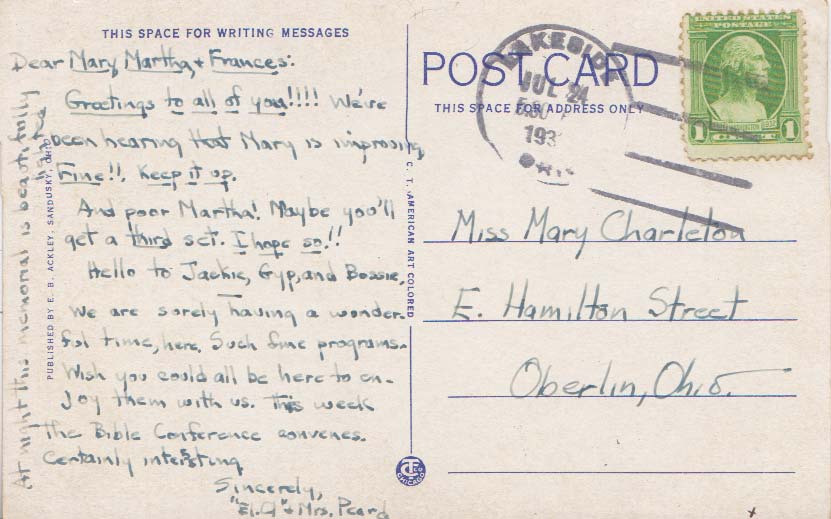 THIS SPACE FOR WRITING MESSAGES
Dear Mary, Martha, + Frances:
Greetings to all of you!!!! We've
been hearing that Mary is improving
Fine!!, Keep it up.
And poor Martha! Maybe you'll
get a third set. I hope so!!
Hello to Jackie, Gyp, and Bossie,
We are surely having a wonder-
ful time, here. Such fine programs.
Wish you could all be here to en-
joy them with us. This week
the Bible Conference convenes.
Certainly interesting
Sincerely,
+ Mrs. Peard
At night this memorial is beautifully
lighted
PUBLISHED BY E. B. ACKLEY, SANDUSKY, OHIO
C. T. AMERICAN ART COLORED
CHICAGO
POST CARD
THIS SPACE FOR ADDRESS ONLY
LAKESIDE
JUL 24
193
UNITED STATES
POSTAGE
1 1
Miss Mary Charleton
E. Hamilton Street
Oberlin, Ohio.